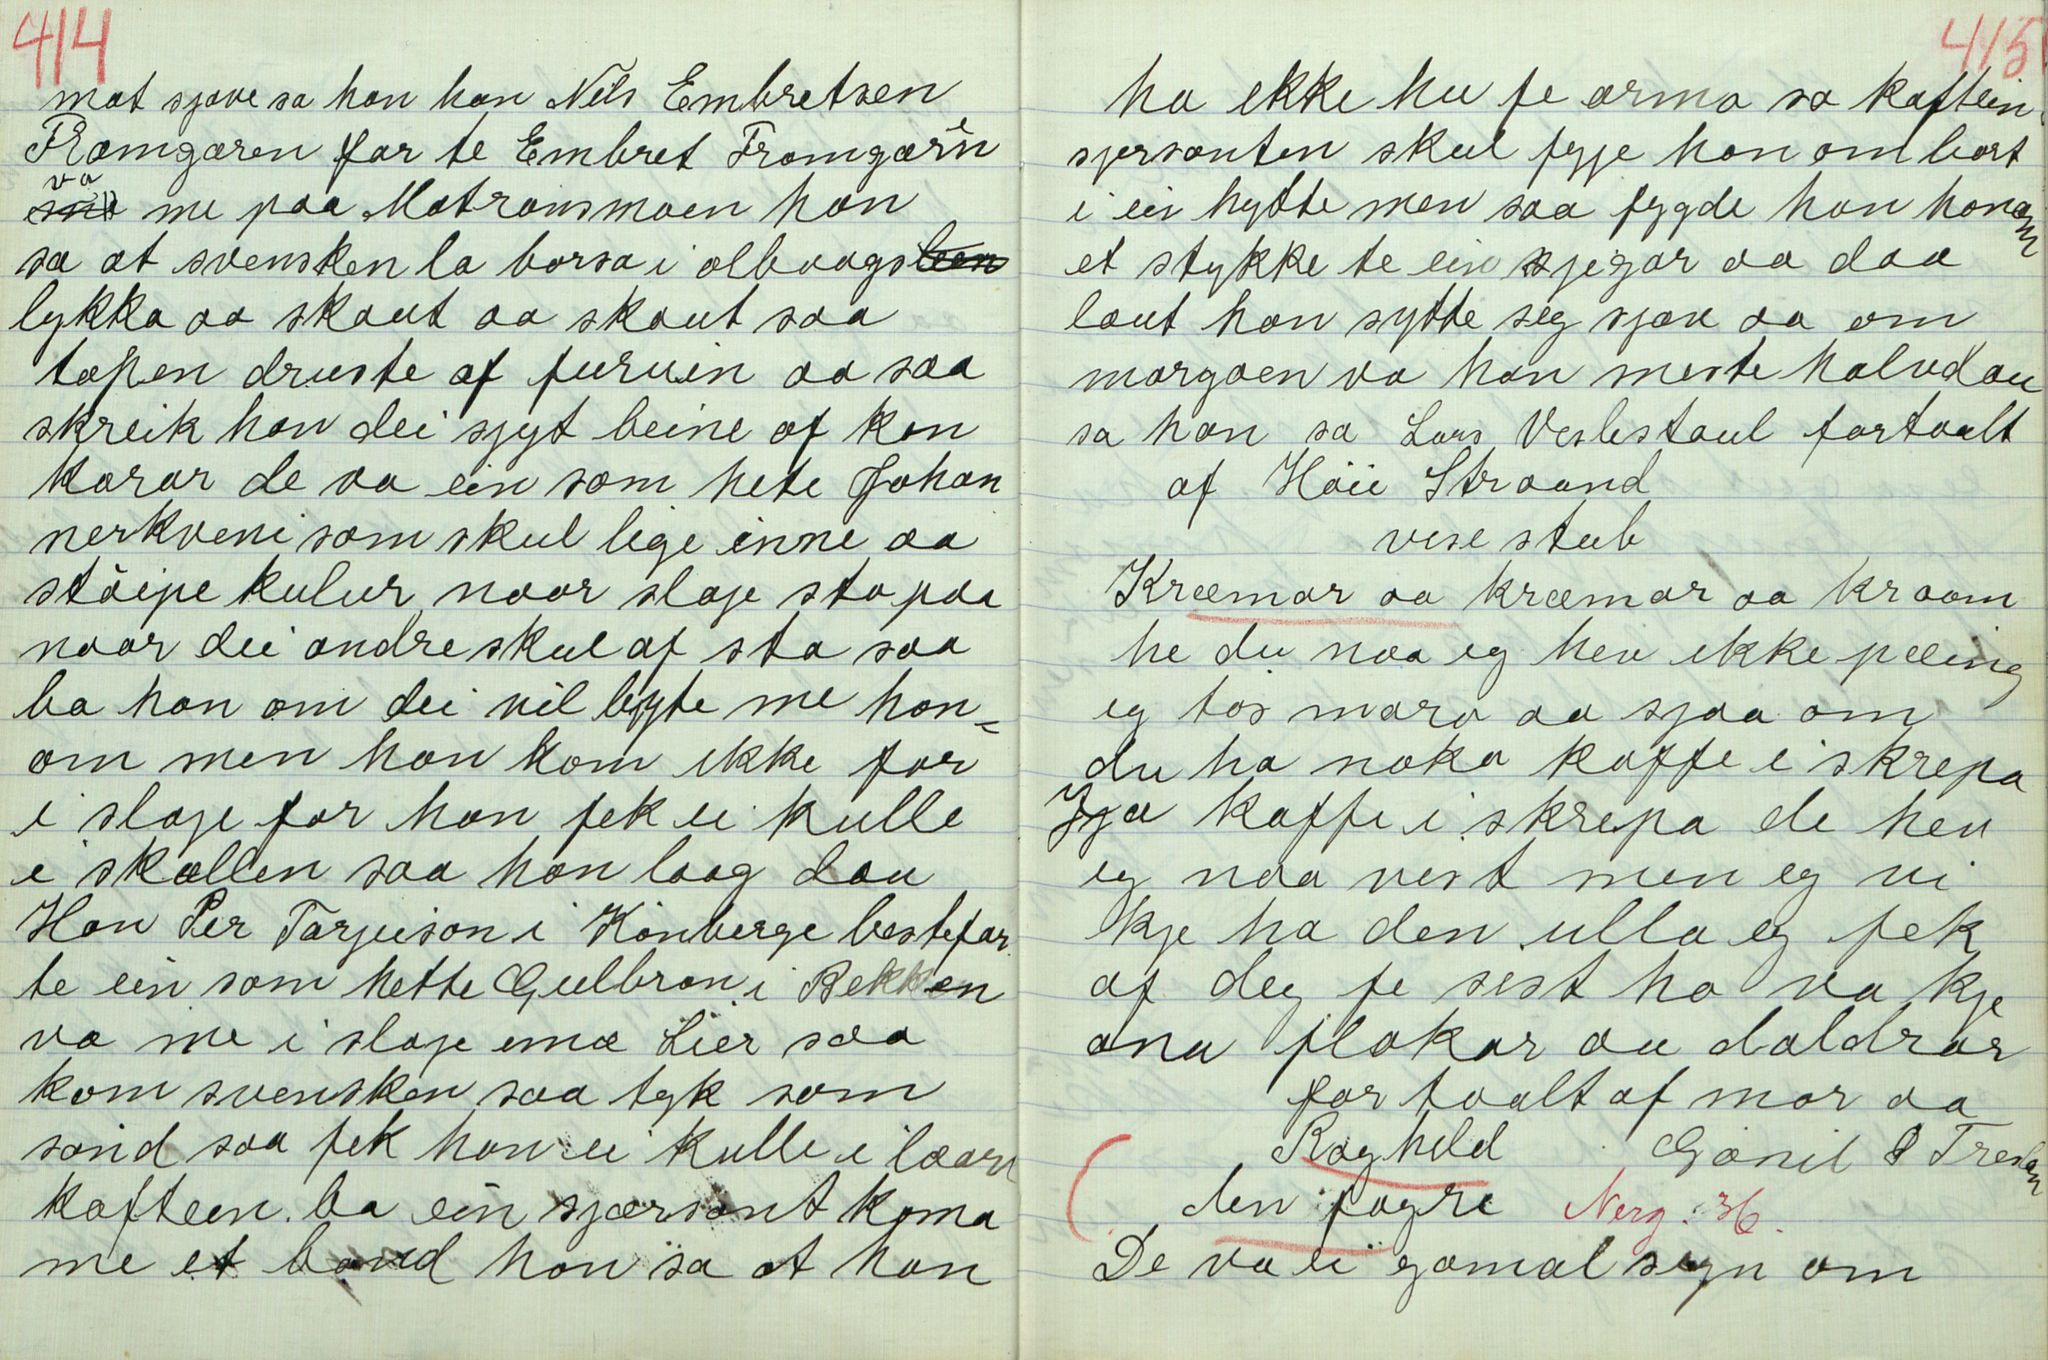 414
mat sjøve sa han han Nils Embretsen
Framgaren far te Embret Framgarin
va me paa Matransmoen han
sa at svensken la borsa i alboogs
lykka aa skaut aa skaut saa
tapen druste af furuin aa saa
skreik han dei sjyt beine af kan
karar de va ein som hete Johan
nerkveni som skul lige inne aa
stöipe kulur naar slaje sto paa
naar dei andre skul af sta saa
ba han om dei vil bjyte me han=
om men han kom ikke for
i slaje for han fek ei kulle
i skallen saa han laag dau
Han Per Tarjuison i Könberge bestefar
te ein som hette Gulbran i Bekken
va me i slaje emæ Lier saa
kom svensken saa tyk som
sand saa fek han ei kulle i laare
kaftein ba ein sjærsant koma
me et band han sa at han
415
ha ikke hu fe arma sa kaftein
sjersanten skul fyje han om bort
i ein hytte men saa fygde han honom
et stykke te ein sjegar aa daa
laut han sytte seg sjøv aa om
morgaen va han meste halvdau
sa han sa Lars Veslestaul fortaalt
af Höie Straand
vise stub
Kræmar aa kræmar aa kraam
he du naa eg hev ikke peeing
eg tös mara aa sjaa om
du ha noka kaffe i skrepa
Jja kaffe i skrepa de hev
eg naa vist men eg vi
kje ha den ulla eg fek
af deg fe sist ho va kje
ana flakar au daldrar
for taalt af mor aa
Raghild Gönil S Treslan
den fagre Nerg. 36.
De va ei gamal segn om